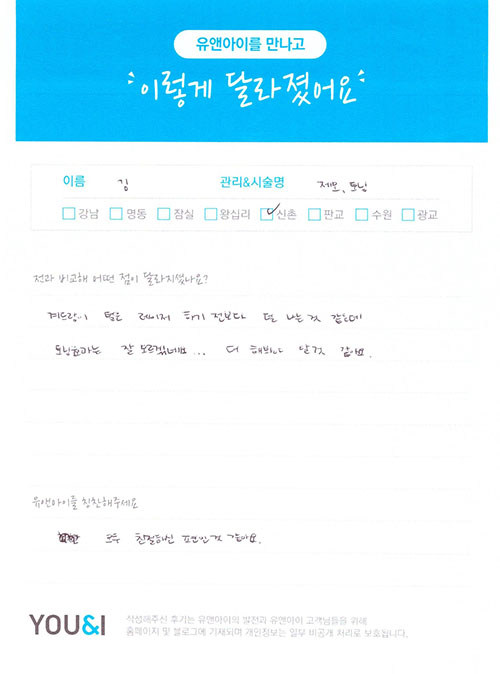 유앤아이를 만나고
이렇게 달라졌어요
이름 김 관리&시술명 제모, 토닝
강남 명동 잠실 왕십리 신촌 판교 수원 광교
전과 비교해 어떤 점이 달라지셨나요?
겨드랑이 털은 레이저 하기 전보다 덜 나는 것 같은데
토닝효과는 잘 모르겠네요... 더 해봐야 알것 같아요.
유앤아이를 칭찬해주세요
모두 친절하신 편인것 같아요.
YOU&I
작성해주신 후기는 유앤아이의 발전과 유앤아이 고객님들을 위해
홈페이지 및 블로그에 기재되며 개인정보는 일부 비공개 처리로 보호됩니다.